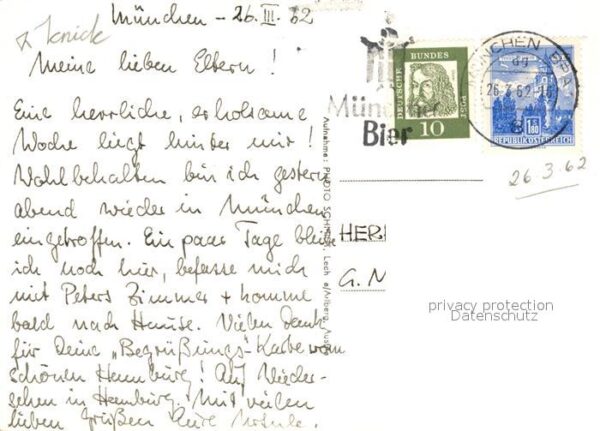 München - 26. III. 62
Knick
Meine lieben Eltern!
Eine herrliche, erholsame
Woche liegt hinter mir!
Wohlbehalten bin ich gestern
abend wieder in München
eingetroffen. Ein paar Tage bleibe
ich noch hier, befasse mich
mit Peters Zimmer + komme
bald nach Hause. Vielen Dank
für Deine "Begrüßungs"-Karte vom
schönen Hamburg! Auf Wieder-
sehen in Hamburg. Mit vielen
lieben Grüßen Eure
Münchner
Bier
DEUTSCHE BUNDESPOST
10
MÜNCHEN BPA
26.3.62-16
1.80
REPUBLIK ÖSTERREICH
26.3.62
Aufnahme: PHOTO Lech a/Arlberg, Austria
HER
G. N
privacy protection
Datenschutz